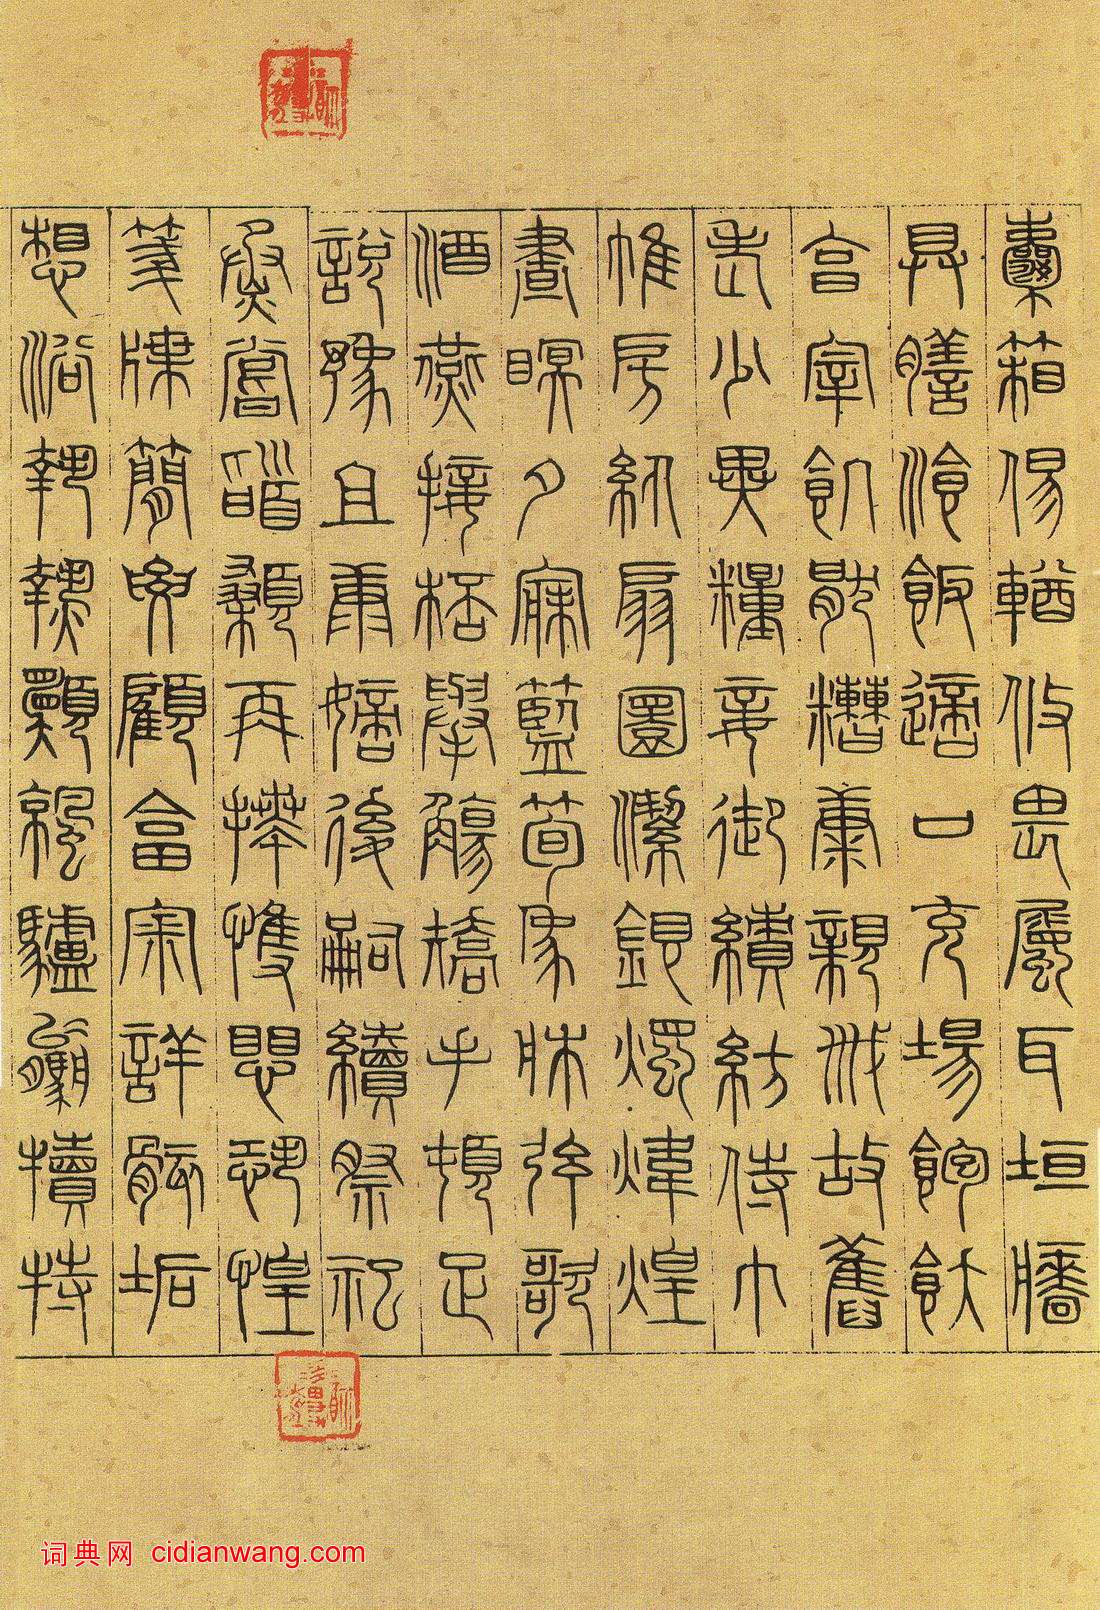 囊箱易輶攸畏屬耳垣牆
具膳飡飯適口充腸飽飫
亯宰飢厭糟糠親戚故舊
老少異糧妾御績紡侍巾
帷房紈扇圓潔銀燭煒煌
晝瞑夕寐籃筍象牀弦歌
酒燕接桮舉觴矯手頓足
說豫且康嫡後嗣續祭祀
烝嘗䭫顙再拜愯懼恐惶
箋牒簡要顧畣宷詳骸垢
想浴執熱願涼驢騾犢特
词典网 cidianwang.com